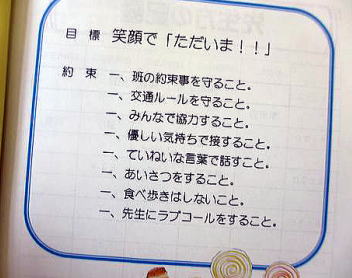 目 標 笑顔で「ただいま！！」
約 束 一、班の約束事を守ること。
一、交通ルールを守ること。
一、みんなで協力すること。
一、優しい気持ちで接すること。
一、ていねいな言葉で話すこと。
一、あいさつをすること。
一、食べ歩きはしないこと。
一、先生にラブコールをすること。